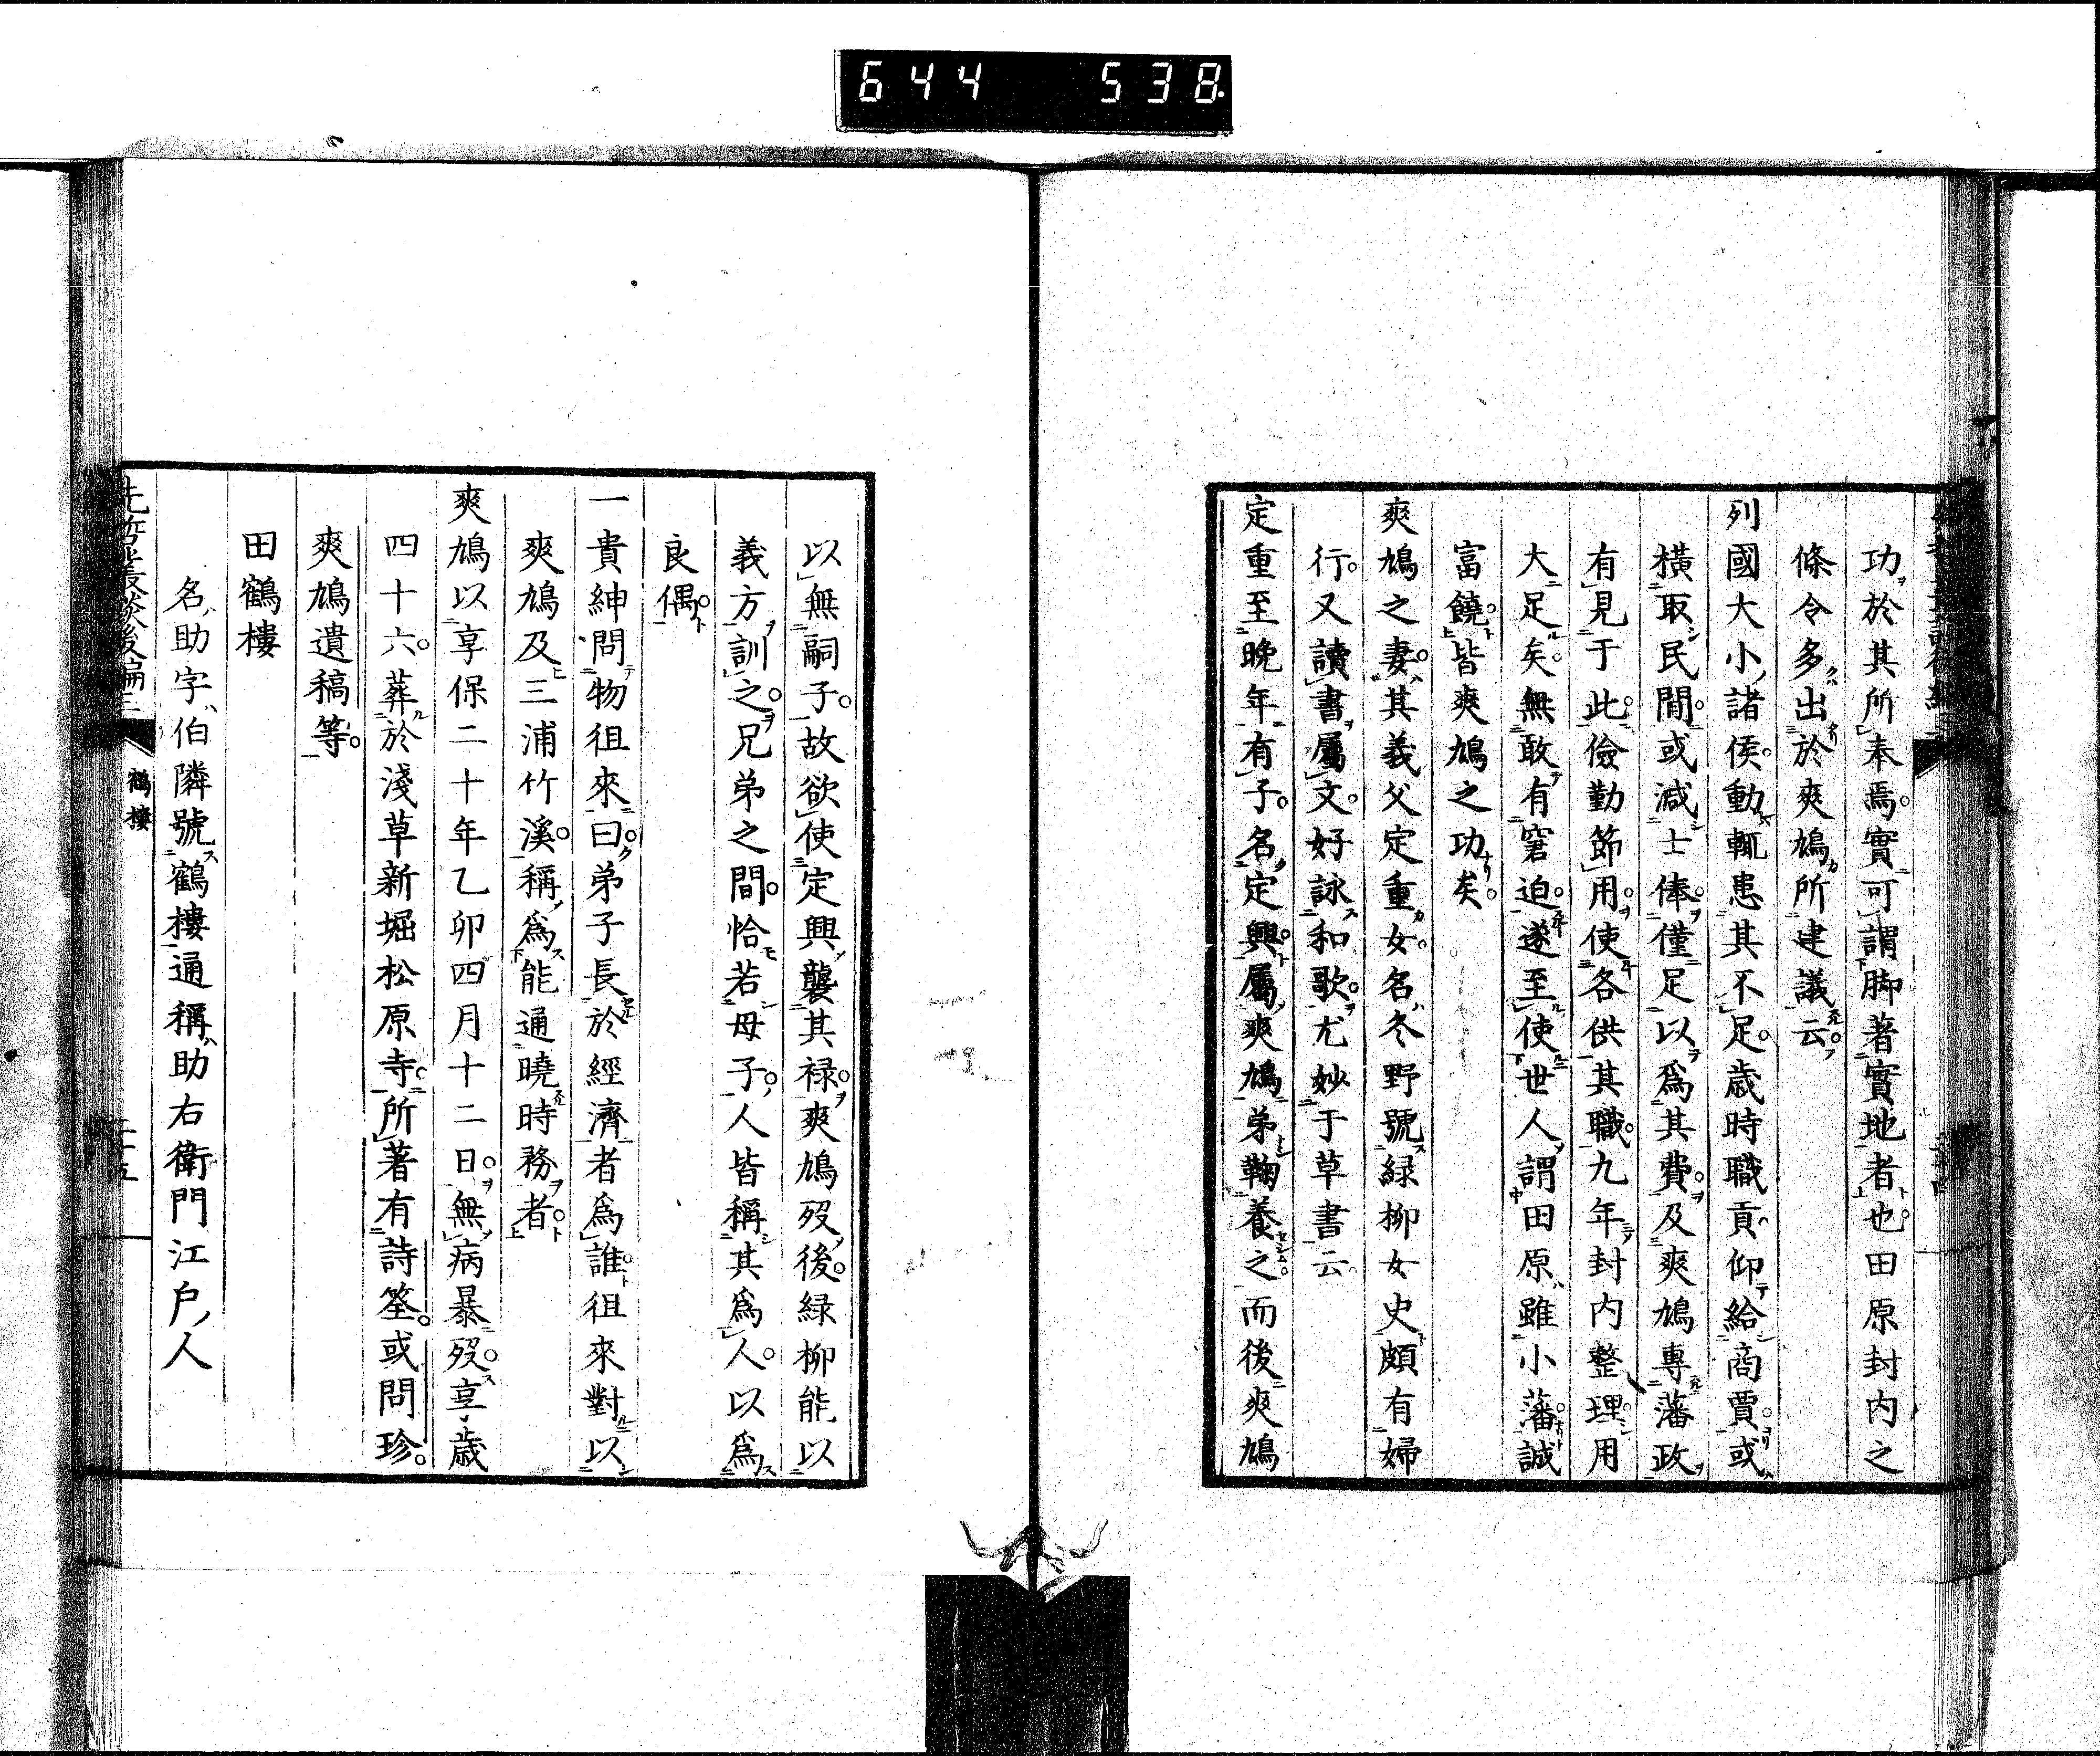 644 538
功於其所奉焉實可謂脚著實地者也田原封内之
條令多出於爽鳩所建議云
列國大小諸侯動輒患其不足歲時職貢仰給商賈或
橫取民間或減士俸僅足以爲其費及爽鳩專藩政
有見于此儉勤節用使各供其職九年封内整理用
大足矣無敢有窘迫遂至使世人謂田原雖小藩誠
富饒皆爽鳩之功矣
爽鳩之妻其義父定重女名冬野號緑柳女史頗有婦
行又讀書屬文好詠和歌尤妙于草書云
定重至晩年有子名定興屬爽鳩弟鞠養之而後爽鳩
以無嗣子故欲使定興襲其禄爽鳩歿後緑柳能以
義方訓之兄弟之間恰若母子人皆稱其爲人以爲
良偶
一貴紳問物徂來曰弟子長於經濟者爲誰徂來對以
爽鳩及三浦竹溪稱爲能通曉時務者
爽鳩以享保二十年乙卯四月十二日無病暴歿享歳
四十六葬於淺草新堀松原寺所著有詩筌或問珍
爽鳩遺稿等
田鶴樓
名助字伯隣號鶴樓通稱助右衛門江戸人
先哲叢談後編三
鶴樓
二十五